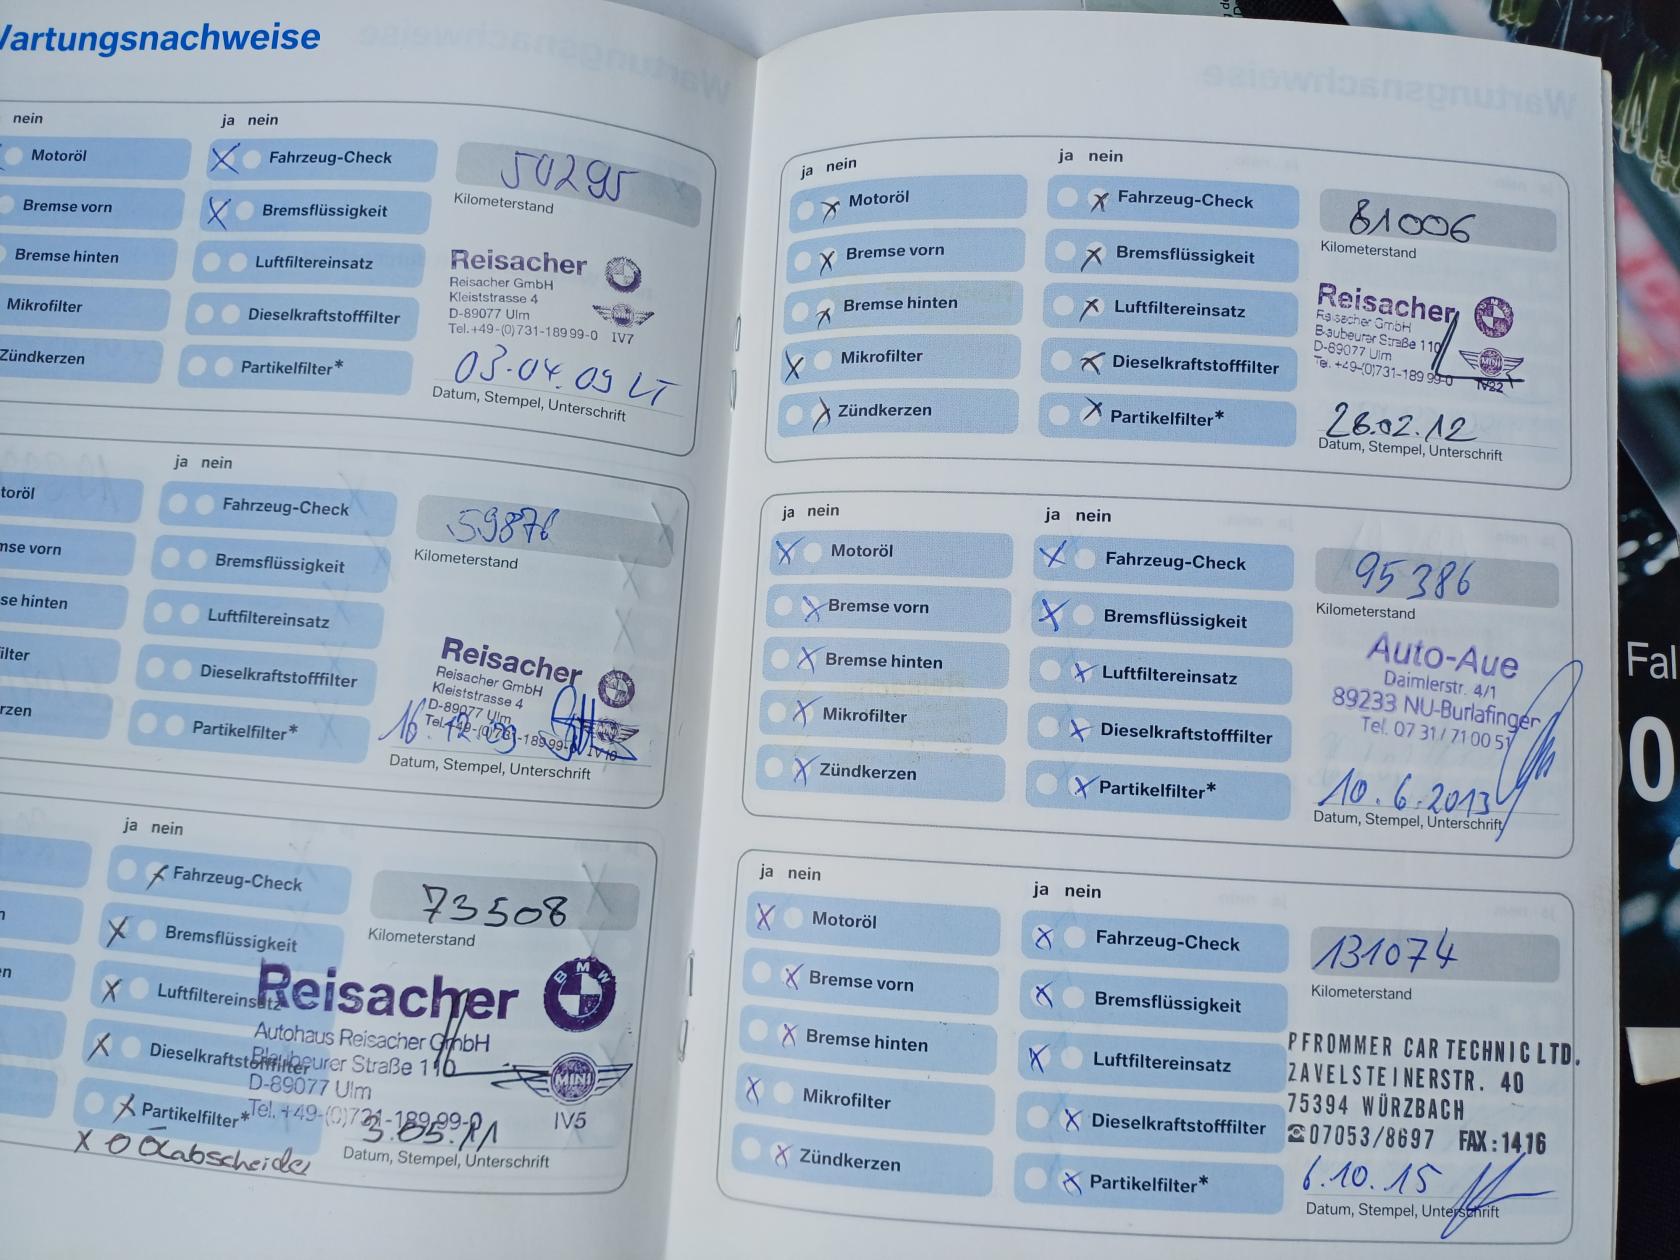 Wartungsnachweise
nein
ja nein
Motoröl
Fahrzeug-Check
50295
Bremse vorn
Bremsflüssigkeit
Kilometerstand
Bremse hinten
Luftfiltereinsatz
Reisacher
Reisacher GmbH
Kleiststrasse 4
D-89077 Ulm
Tel.+49-(0)731-18999-0 IV7
Mikrofilter
Dieselkraftstofffilter
Zündkerzen
Partikelfilter*
03.04.09 LT
Datum, Stempel, Unterschrift
ja nein
toröl
Fahrzeug-Check
59876
mse vorn
Bremsflüssigkeit
Kilometerstand
se hinten
Luftfiltereinsatz
Reisacher
Reisacher GmbH
Kleiststrasse 4
D-89077 Ulm
Tel.+49-(0)731-18999-0
ilter
Dieselkraftstofffilter
rzen
Partikelfilter*
16.12.09
Datum, Stempel, Unterschrift
ja nein
Fahrzeug-Check
73508
n
Bremsflüssigkeit
Kilometerstand
en
Luftfiltereinsatz
Reisacher
BMW
Autohaus Reisacher GmbH
Blaubeurer Straße 110
D-89077 Ulm
Tel. +49-(0)731-189 99-0
MINI
IV5
Dieselkraftstofffilter
Partikelfilter*
3.05.11
x o Ölabscheider
Datum, Stempel, Unterschrift
ja nein
ja nein
Motoröl
Fahrzeug-Check
81006
Bremse vorn
Bremsflüssigkeit
Kilometerstand
Bremse hinten
Luftfiltereinsatz
Reisacher
Reisacher GmbH
Blaubeurer Straße 110
D-89077 Ulm
Tel. +49-(0)731-189 99-0
MINI
IV22
Mikrofilter
Dieselkraftstofffilter
Zündkerzen
Partikelfilter*
28.02.12
Datum, Stempel, Unterschrift
ja nein
ja nein
Motoröl
Fahrzeug-Check
95386
Bremse vorn
Bremsflüssigkeit
Kilometerstand
Bremse hinten
Luftfiltereinsatz
Auto-Aue
Daimlerstr. 4/1
89233 NU-Burlafingen
Tel. 07 31 / 71 00 51
Mikrofilter
Dieselkraftstofffilter
Zündkerzen
Partikelfilter*
10.6.2013
Datum, Stempel, Unterschrift
ja nein
ja nein
Motoröl
Fahrzeug-Check
131074
Bremse vorn
Bremsflüssigkeit
Kilometerstand
Bremse hinten
Luftfiltereinsatz
PFROMMER CAR TECHNIC LTD.
ZAVELSTEINERSTR. 40
75394 WÜRZBACH
☎07053/8697 FAX:1416
Mikrofilter
Dieselkraftstofffilter
Zündkerzen
Partikelfilter*
6.10.15
Datum, Stempel, Unterschrift
Fal
0